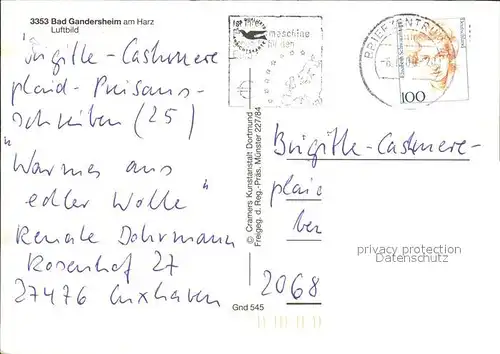 3353 Bad Gandersheim am Harz
Luftbild
"Brigitte-Cashmere
plaid-Preisaus-
schreiben (25)
"Warmes aus
edler Wolle"
Renate Dohrmann
Rosenhof 27
27476 Cuxhaven
Gnd 545
© Cramers Kunstanstalt Dortmund
Freigeg. d. Reg.-Präs. Münster 227/84
maschine
für den
BRIEFZENTRUM
100
Brigitte-Cashmere-
plaid
ben
2068
privacy protection
Datenschutz